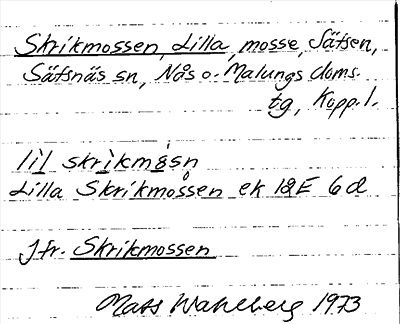 Skrikmossen, Lilla, mosse, Säfsen,
Säfsnäs sn, Nås o. Malungs doms.
tg, Kopp. l.
lil skrikmåsn
Lilla Skrikmossen ek 12E 6d
Jfr. Skrikmossen
Mats Wahlberg 1973